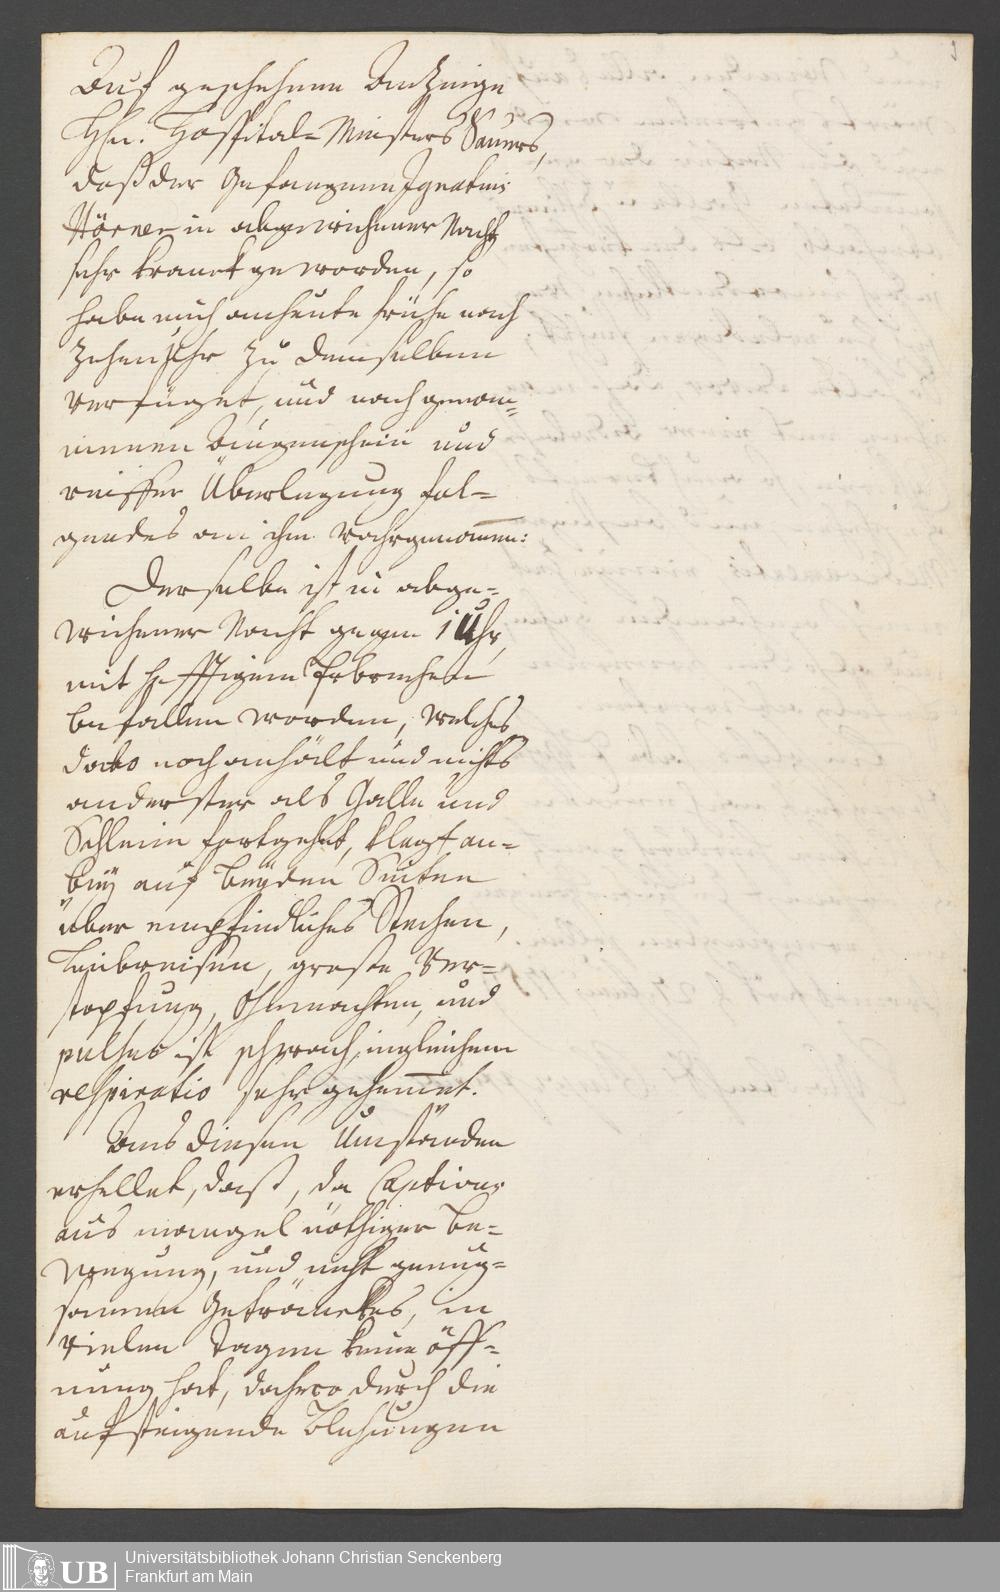 Auf geschehene Anzeige
Hhn. Hospital-Meisters Sauers,
daß der Gefangene Ignatius
Hörner in abgewichener Nacht
sehr kranck geworden, so
habe mich anheute frühe nach
Zehen Uhr zu demselben
verfüget, und nach genom-
menen Augenschein und
reiffer Überlegung fol-
gendes an ihm wahrgenommen:
Derselbe ist in abge-
wichener Nacht gegen 1 Uhr,
mit hefftigem Erbrechen
befallen worden, welches
dato noch anhält und nichts
anderster als Galle und
Schleim fortgehet, klagt an-
bey auf beyden Seiten
über empfindliches Stechen,
Leibreisen, große Ver-
stopfung, Ohnmachten, und
pulsus ist schwach, ingleichem
respiratio sehr gehemmet.
Aus diesen Umständen
erhellet, daß, da Captivus
aus mangel nöthiger Be-
wegung, und nicht genug-
samen Geträncks, in
vielen Tagen keine öff-
nung hat, dahero durch die
aufsteigende Blehungen
Universitätsbibliothek Johann Christian Senckenberg
UB Frankfurt am Main